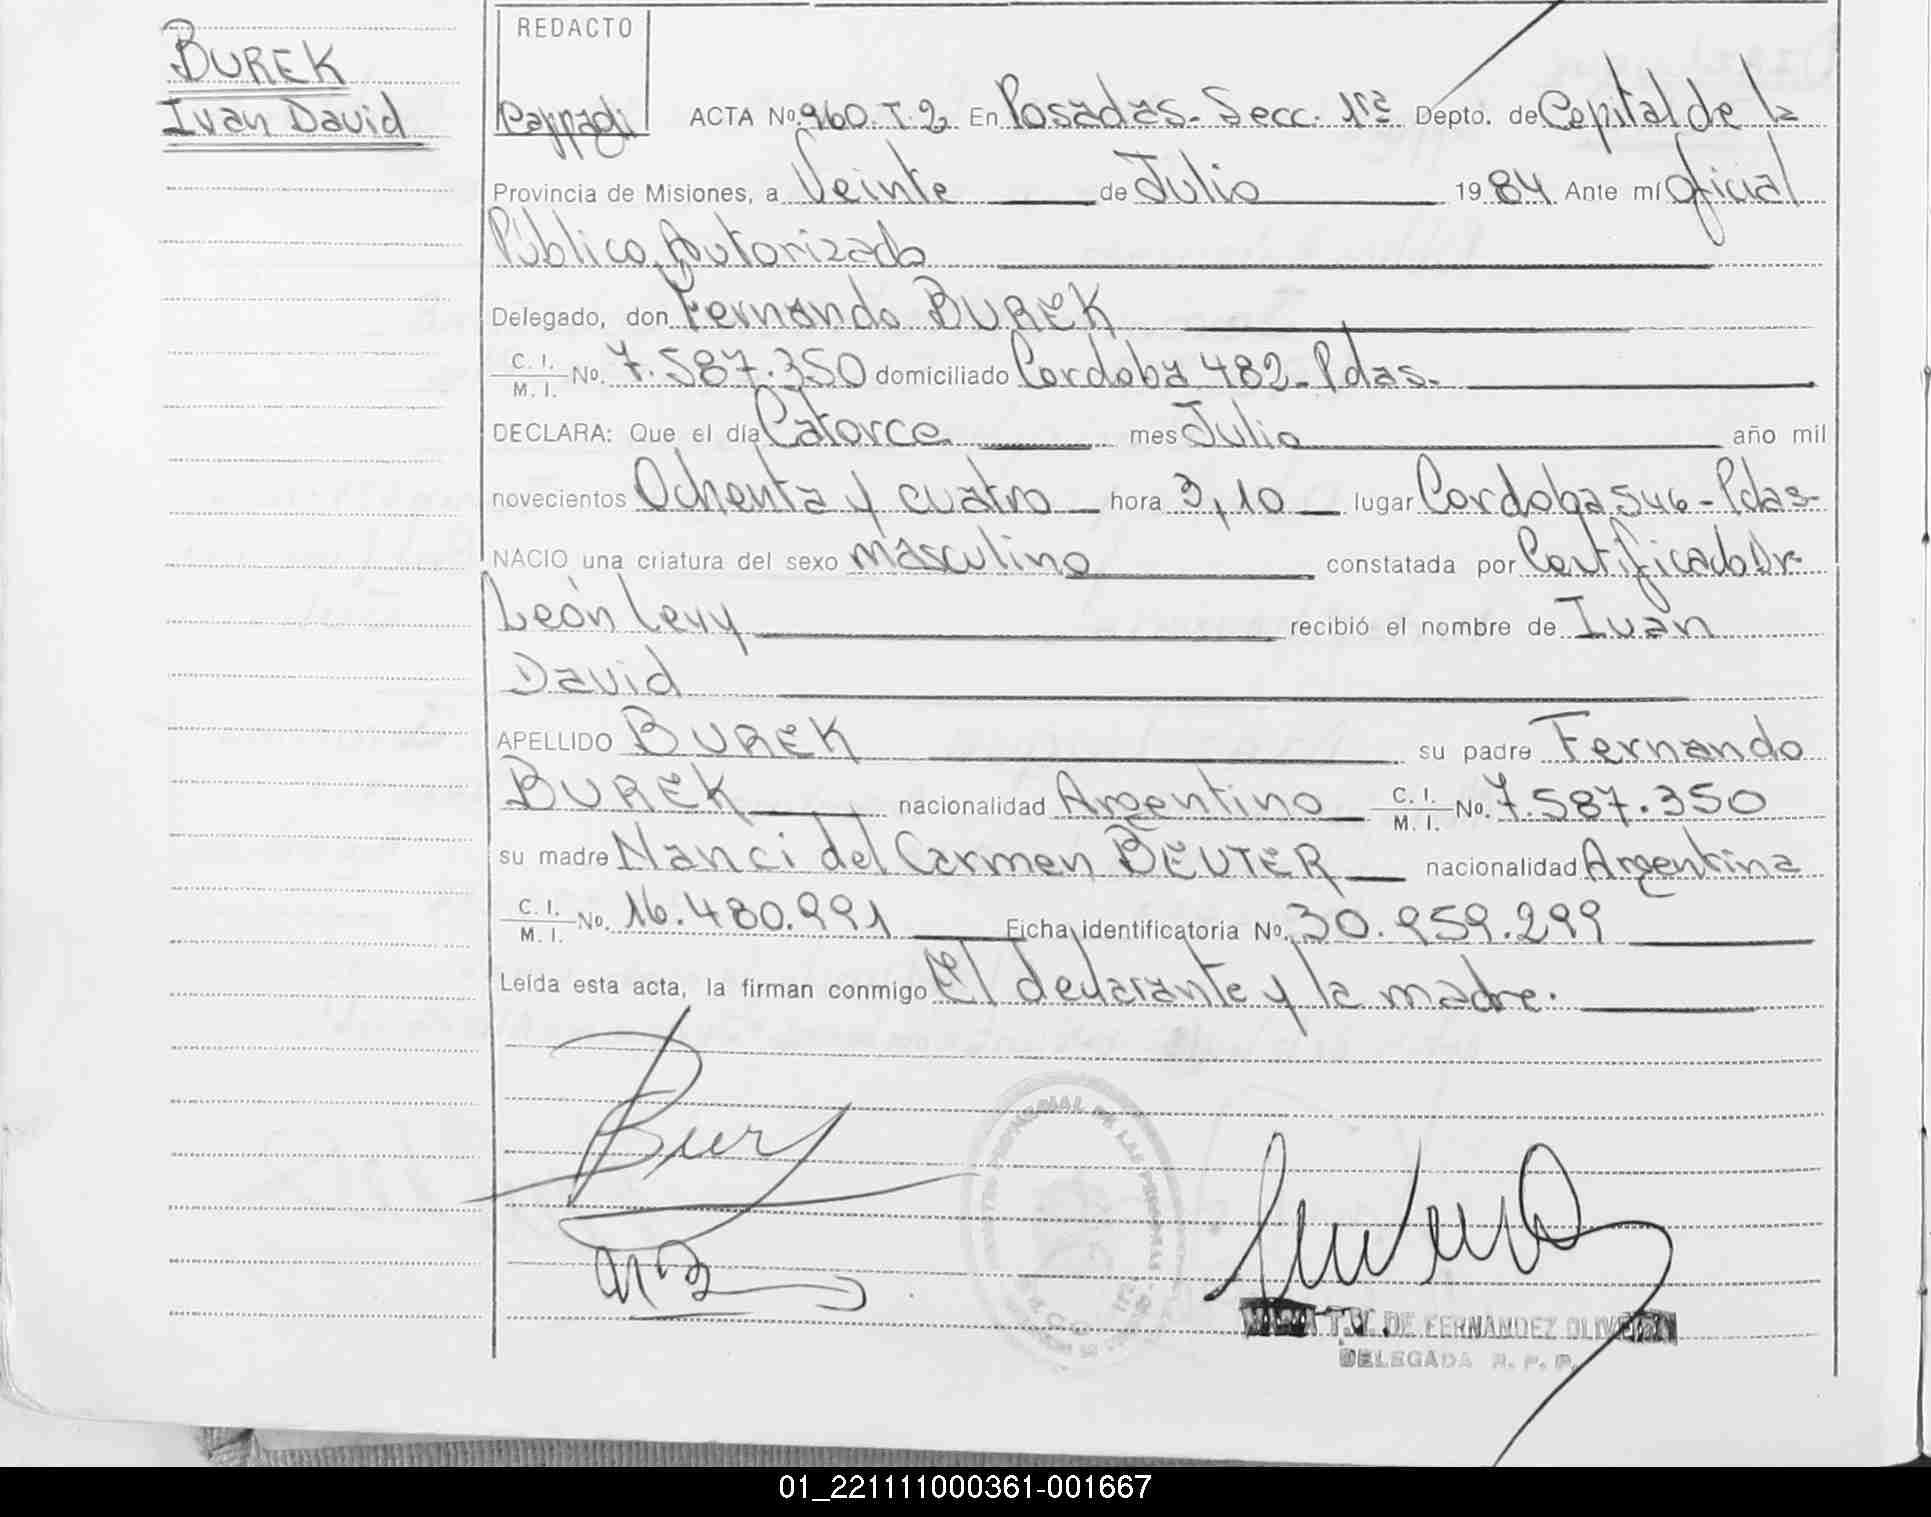 BUREK
Ivan David
REDACTO
ACTA Nº 960. T. 2 En Posadas- Secc. 1ra Depto. de Capital de la
Provincia de Misiones, a Veinte de Julio 1984 Ante mí Oficial
Público Autorizado
Delegado, don Fernando BUREK
C. I.
M. I. No. 7.587.350 domiciliado Cordoba 482- Pdas-
DECLARA: Que el día Catorce mes Julio año mil
novecientos Ochenta y cuatro hora 3,10 lugar Cordoba 546- Pdas-
NACIO una criatura del sexo masculino constatada por Certificado Dr.
León Levy recibió el nombre de Ivan
David
APELLIDO BUREK su padre Fernando
BUREK nacionalidad Argentino C. I. M. I. No. 7.587.350
su madre Nanci del Carmen BEUTER nacionalidad Argentina
C. I. M. I. No. 16.480.991 Ficha identificatoria No. 30.959.299
Leída esta acta, la firman conmigo El declarante y la madre.
T.V. DE FERNANDEZ OLIVEIRA
DELEGADA R. P. P.
01_221111000361-001667